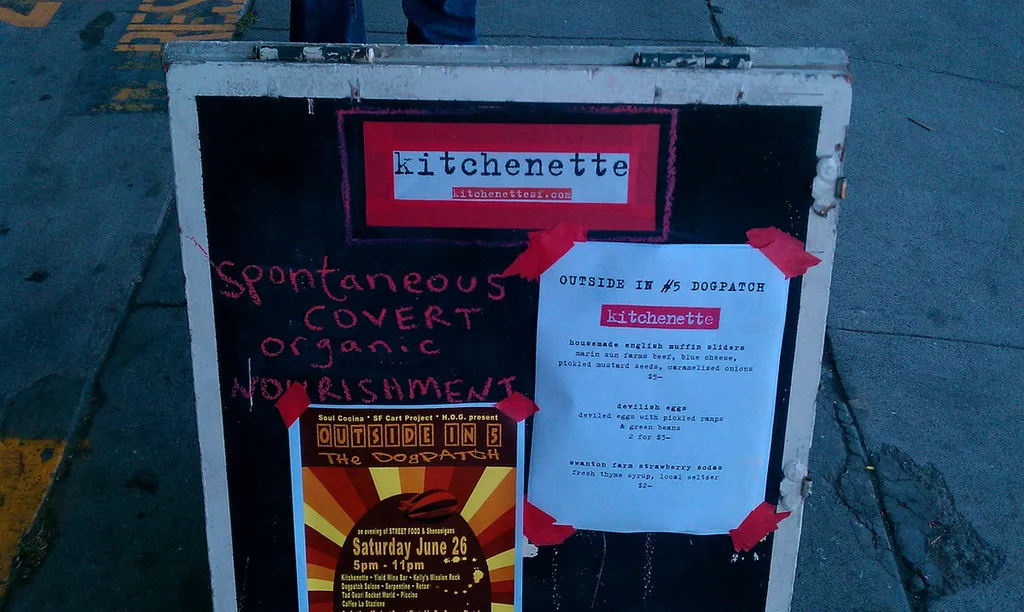 kitchenette
kitchenettesf.com
Spontaneous
COVERT
organic
NOURISHMENT
OUTSIDE IN #5 DOGPATCH
kitchenette
housemade english muffin sliders
marin sun farms beef, blue cheese,
pickled mustard seeds, caramelized onions
$5-
devilish eggs
deviled eggs with pickled ramps
& green beans
2 for $3-
swanton farm strawberry sodas
fresh thyme syrup, local seltzer
$2-
Soul Cocina * SF Cart Project * H.O.G. present
OUTSIDE IN 5
THE DOGPATCH
an evening of STREET FOOD & Shenanigans
Saturday June 26
5pm - 11pm
Kitchenette - Yield Wine Bar - Kelly's Mission Rock
Dogpatch Saloon - Serpentine - Retox
Tad Geari Rocket World - Piccino
Caffee La Stazione